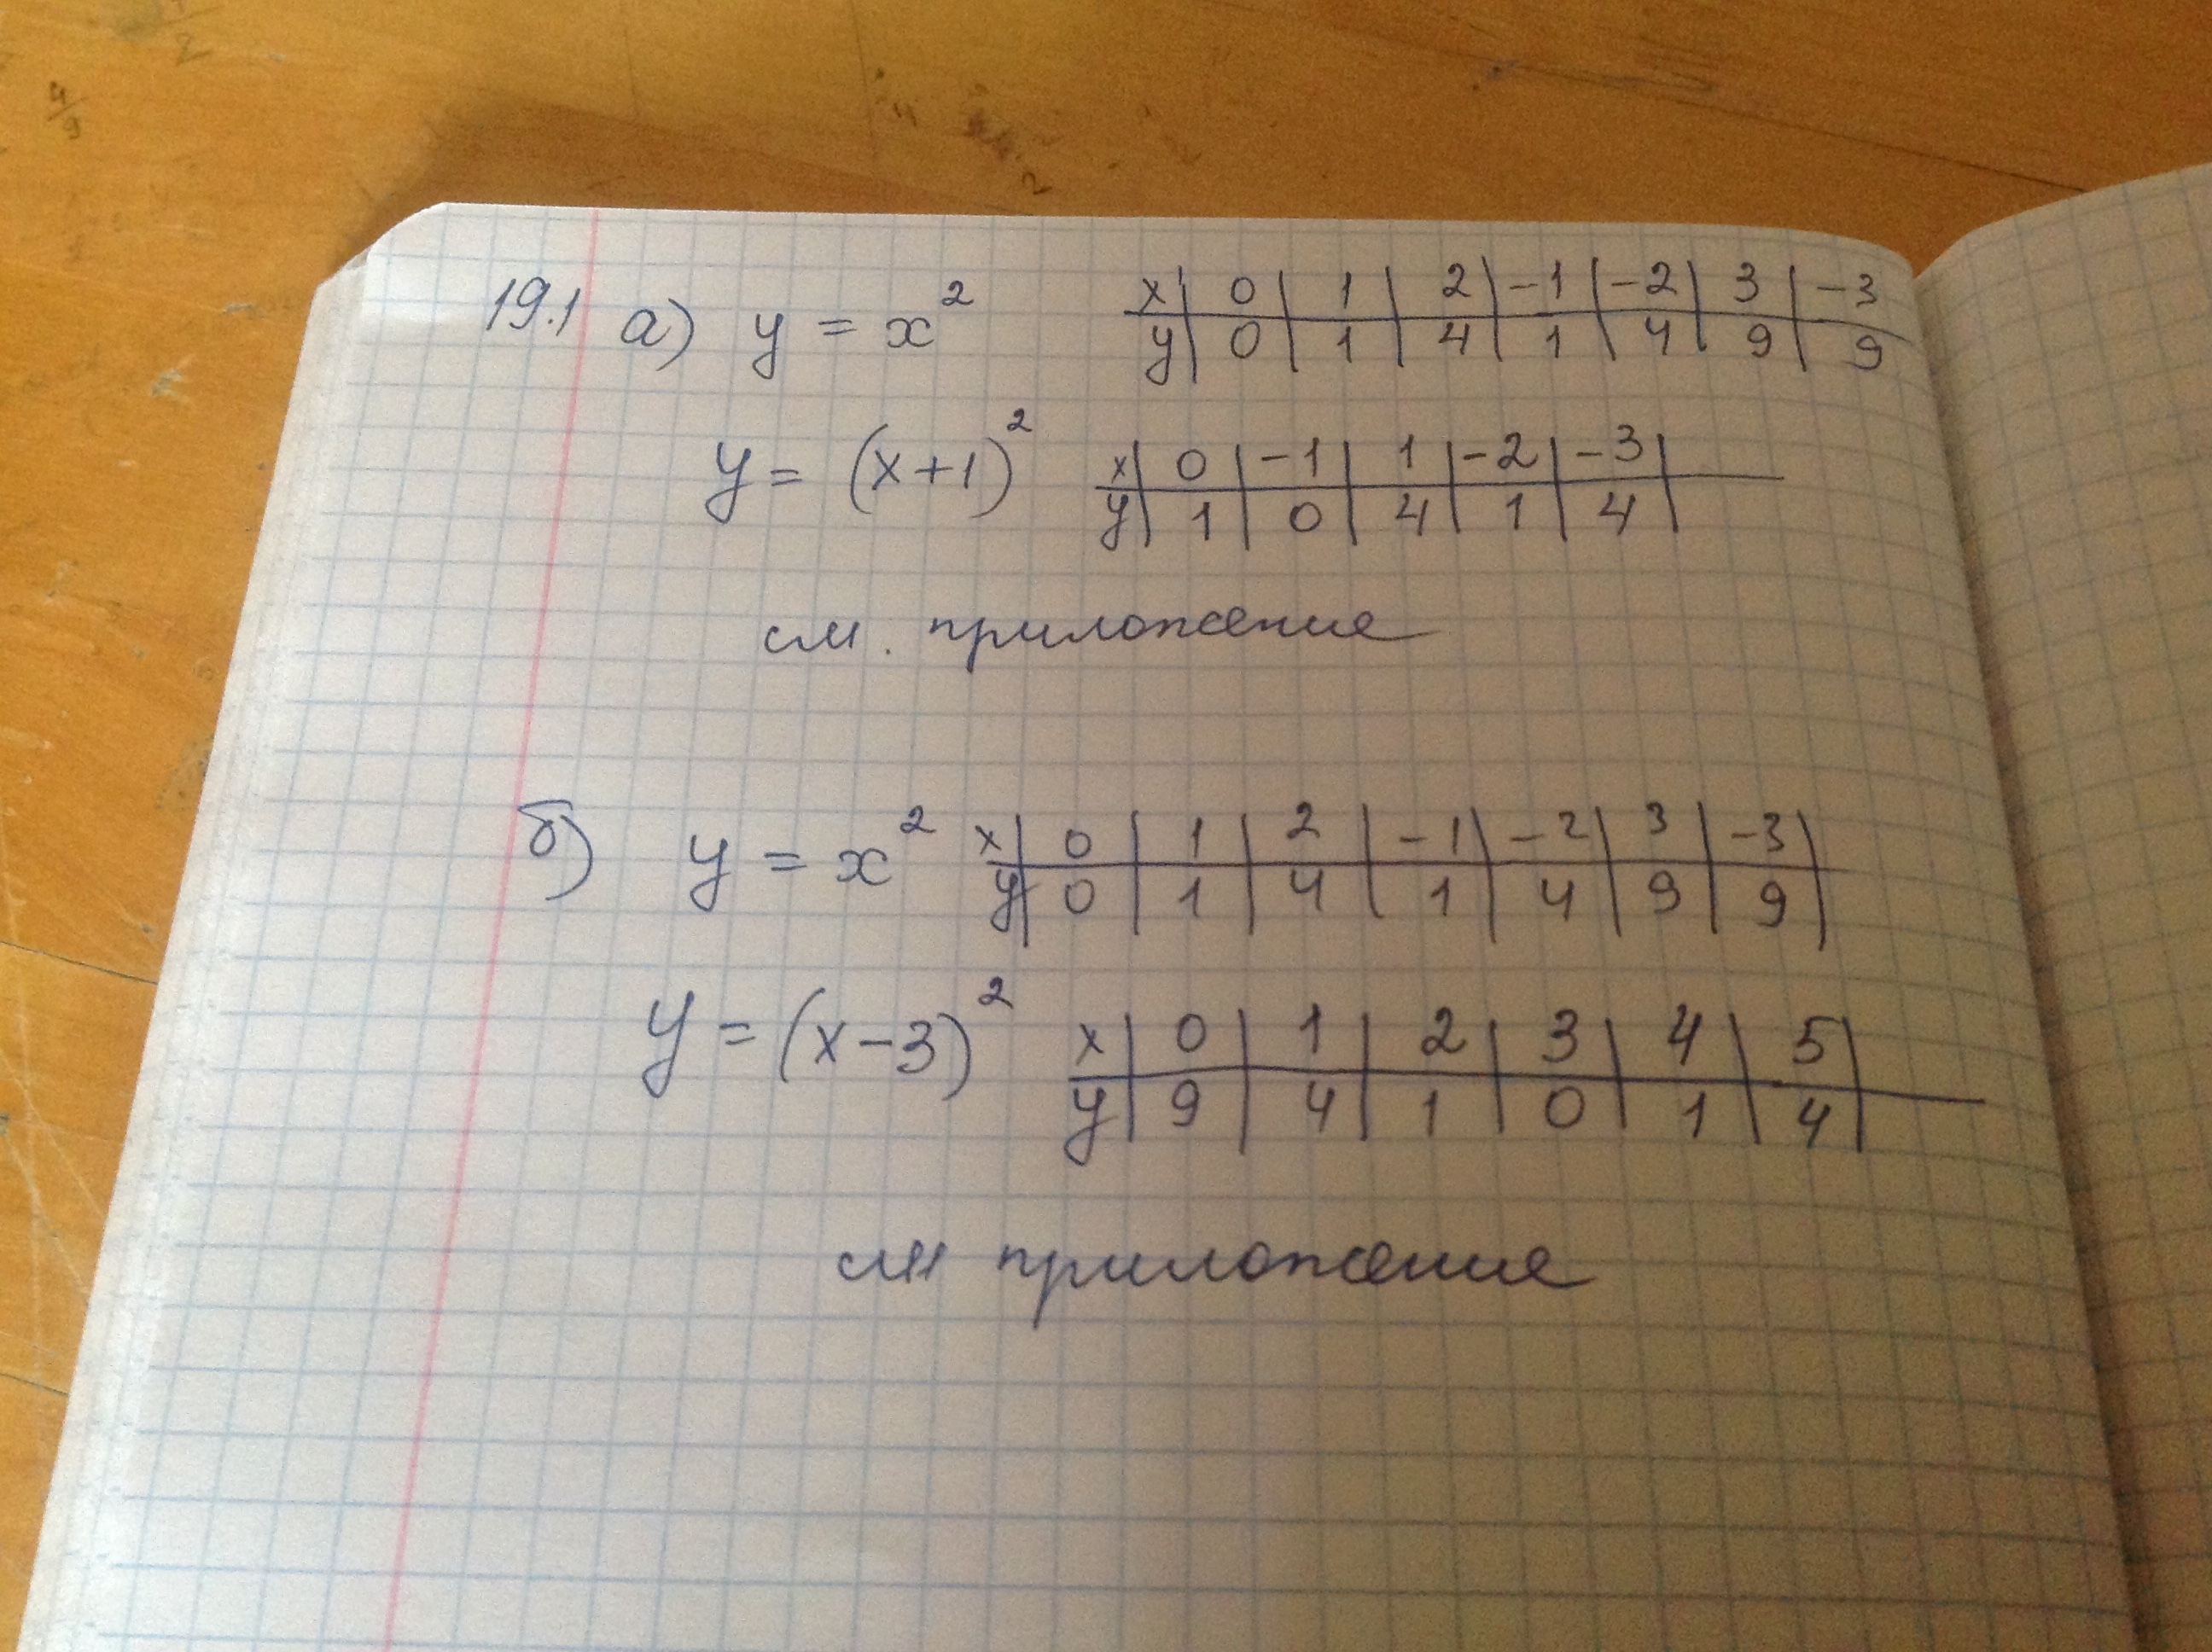 19.1 а) y = x² x | 0 | 1 | 2 | -1 | -2 | 3 | -3
y | 0 | 1 | 4 | 1 | 4 | 9 | 9
y = (x+1)² x | 0 | -1 | 1 | -2 | -3 |
y | 1 | 0 | 4 | 1 | 4 |
см. приложение
б) y = x² x | 0 | 1 | 2 | -1 | -2 | 3 | -3 |
y | 0 | 1 | 4 | 1 | 4 | 9 | 9 |
y = (x-3)² x | 0 | 1 | 2 | 3 | 4 | 5 |
y | 9 | 4 | 1 | 0 | 1 | 4 |
см приложение